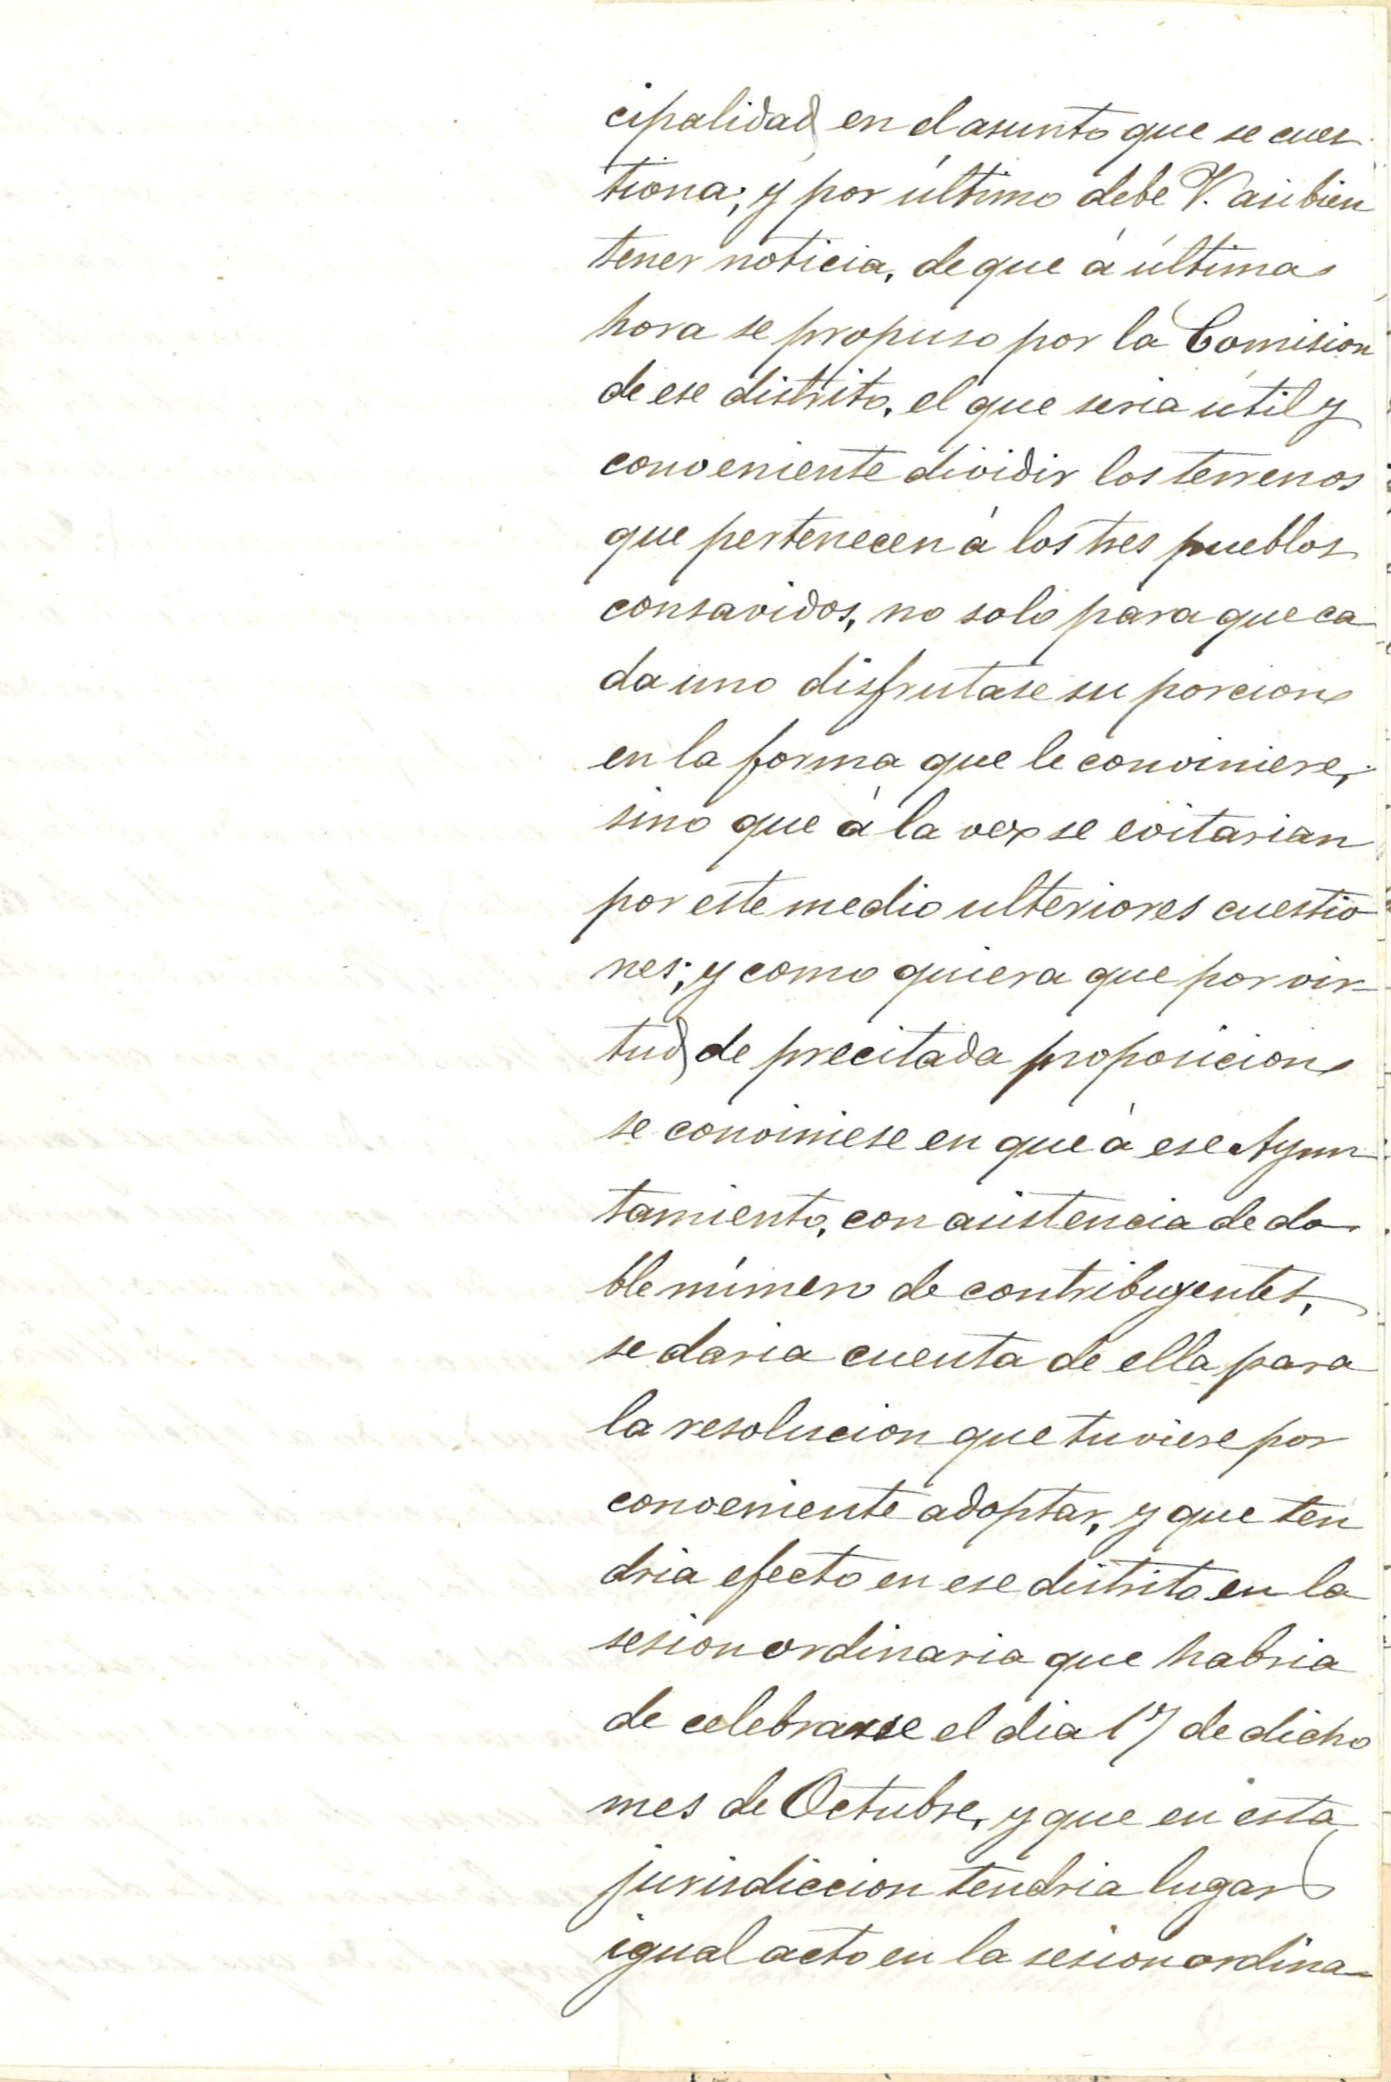 cipalidad en el asunto que se cues
tiona; y por último debe V. asi bien
tener noticia, de que á última
hora se propuso por la Comision
de ese distrito, el que seria útil y
conveniente dividir los terrenos
que pertenecen á los tres pueblos
consavidos, no solo para que ca
da uno disfrutase su porcion
en la forma que le conviniere,
sino que á la vez se evitarian
por este medio ulteriores cuestio
nes; y como quiera que por vir-
tud de precitada proposicion
se conviniese en que á ese Ayun
tamiento, con asistencia de do
ble número de contribuyentes,
se daria cuenta de ella para
la resolucion que tuviese por
conveniente adoptar, y que ten
dria efecto en ese distrito en la
sesion ordinaria que habria
de celebrarse el dia 17 de dicho
mes de Octubre, y que en esta
jurisdiccion tendria lugar
igual acto en la sesion ordina-